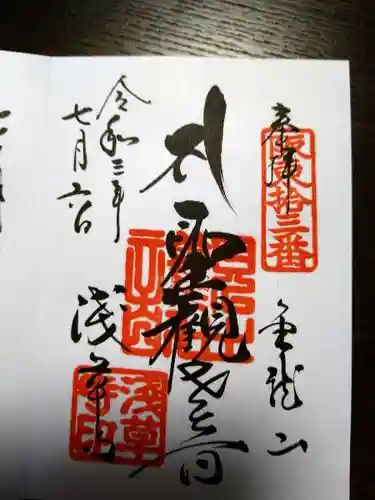 奉拝
坂東拾三番
金龍山
聖観世音
令和三年
七月六日
浅草寺
浅草寺印